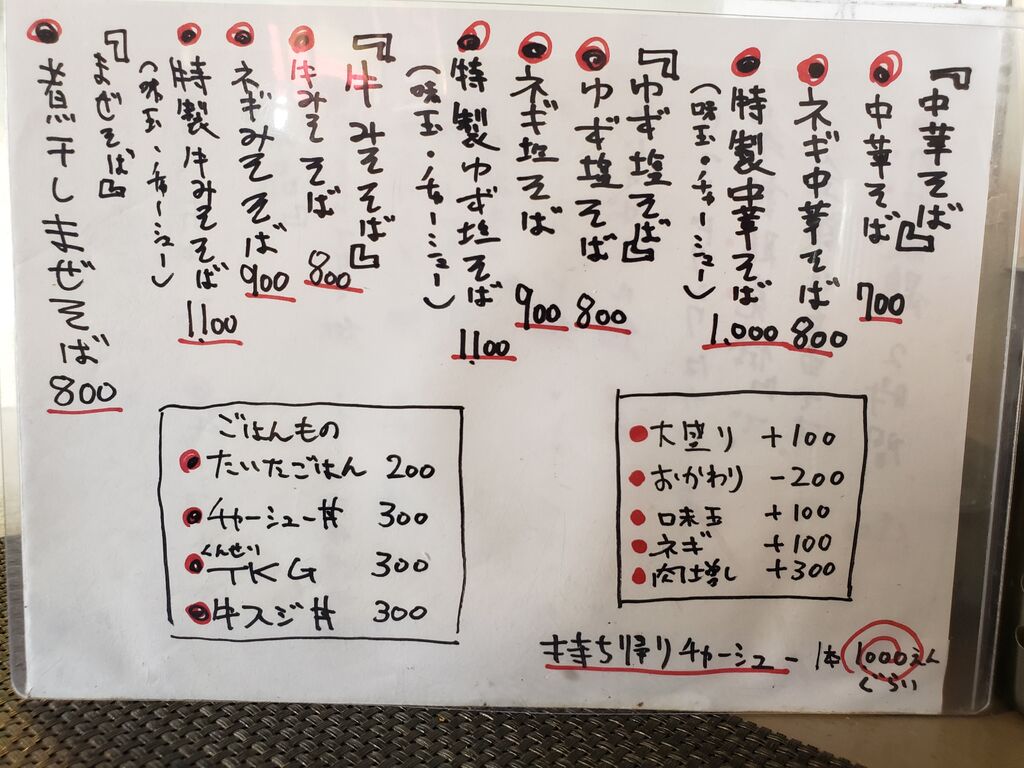 『中華そば』
中華そば 700
ネギ中華そば 800
特製中華そば 1,000
(味玉・チャーシュー)
『ゆず塩そば』
ゆず塩そば 800
ネギ塩そば 900
特製ゆず塩そば 1,100
(味玉・チャーシュー)
『牛みそそば』
牛みそそば 800
ネギみそそば 900
特製牛みそそば 1,100
(味玉・チャーシュー)
『まぜそば』
煮干しまぜそば 800
ごはんもの
たいたごはん 200
チャーシュー丼 300
くんせい
TKG 300
牛スジ丼 300
大盛り +100
おかわり -200
味玉 +100
ネギ +100
肉増し +300
持ち帰りチャーシュー 1本 1000えん
ぐらい